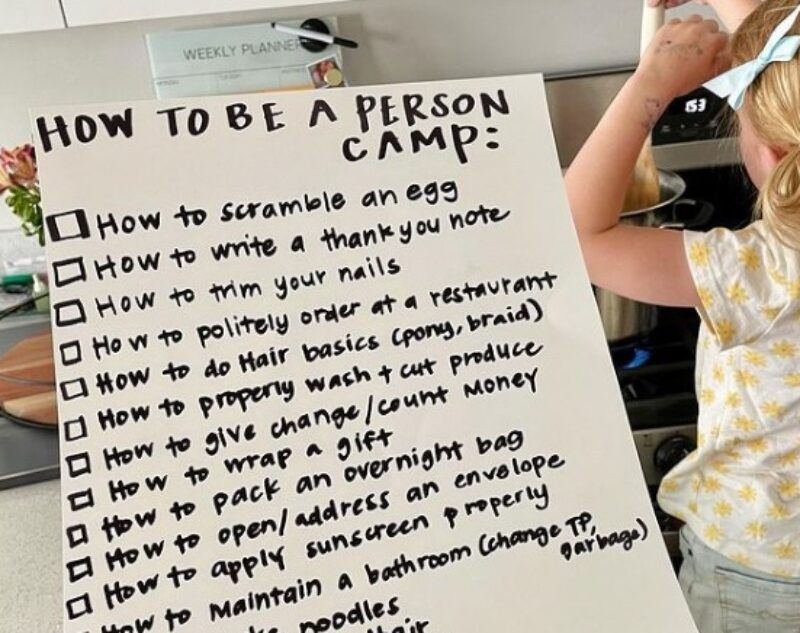 WEEKLY PLANNER
153
HOW TO BE A PERSON
CAMP:
How to scramble an egg
How to write a thank you note
How to trim your nails
How to politely order at a restaurant
How to do Hair basics (pony, braid)
How to properly wash + cut produce
How to give change/count Money
How to wrap a gift
How to pack an overnight bag
How to open/address an envelope
How to apply sunscreen properly
How to Maintain a bathroom (change TP,
garbage)
noodles